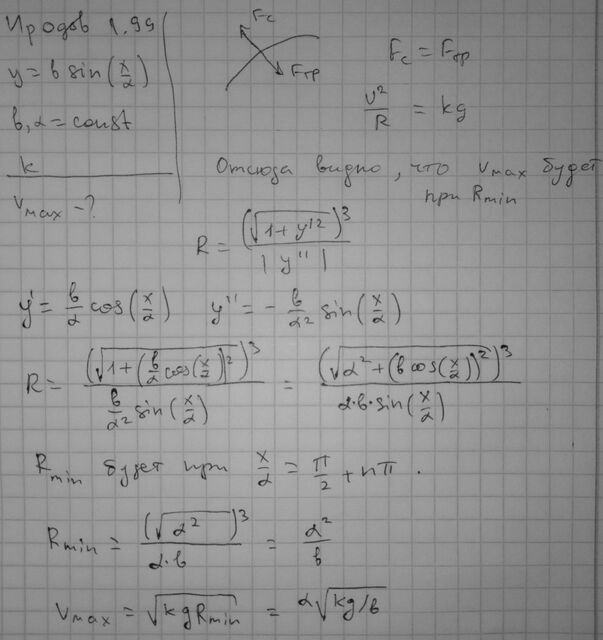 Иродов 1.99
y = b sin(x/α)
b, α = const
k
Vmax - ?
Fc
Fтр
Fc = Fтр
v²/R = kg
Отсюда видно, что Vmax будет
при Rmin
R = (√(1+y'²))³ / |y''|
y' = b/α cos(x/α) y'' = - b/α² sin(x/α)
R = (√(1+(b/α cos(x/α))²))³ / (b/α² sin(x/α)) = (√(α²+(b cos(x/α))²))³ / (α·b·sin(x/α))
Rmin будет при x/α = π/2 + nπ.
Rmin = (√(α²))³ / (α·b) = α²/b
Vmax = √(kgRmin) = α√(kg/b)